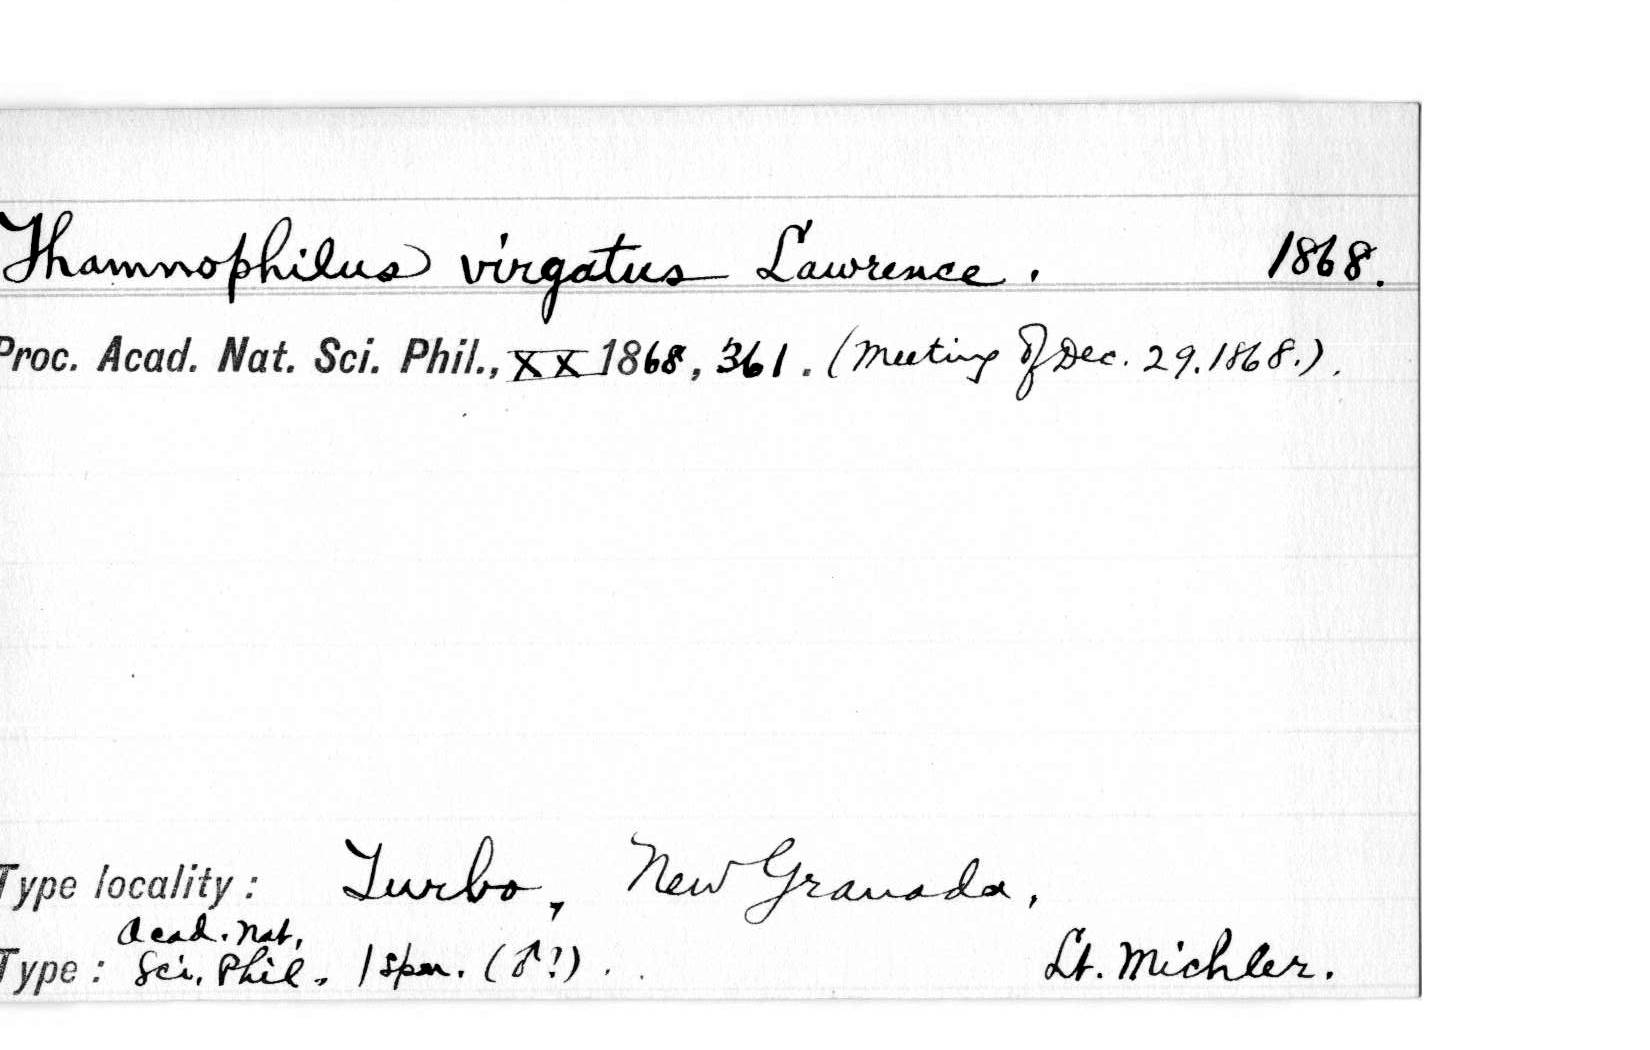 Thamnophilus virgatus Lawrence. 1868.
Proc. Acad. Nat. Sci. Phil., XX 1868, 361. (Meeting of Dec. 29. 1868.).
Type locality: Turbo, New Granada.
Acad. Nat.
Type: Sci. Phil. 1 spm. (♂?). Lt. Michler.